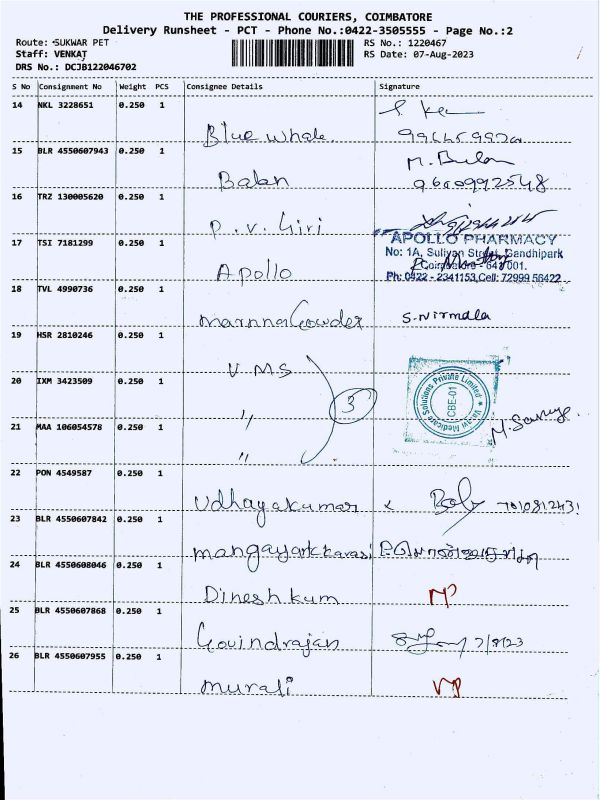 THE PROFESSIONAL COURIERS, COIMBATORE
Delivery Runsheet - PCT - Phone No.:0422-3505555 - Page No.:2
Route: SUKWAR PET
RS No.: 1220467
Staff: VENKAT
RS Date: 07-Aug-2023
DRS No.: DCJB122046702
S No Consignment No Weight PCS Consignee Details Signature
14 NKL 3228651 0.250 1
Blue whale
15 BLR 4550607943 0.250 1
Balan 9600992548
16 TRZ 130005620 0.250 1
P.V. Giri
17 TSI 7181299 0.250 1
Apollo
APOLLO PHARMACY
No: 1A, Suliyan Street, Gandhipark
Coimbatore - 641 001.
Ph: 0422 - 2341153, Cell: 72999 56422
18 TVL 4990736 0.250 1
MannaGowder S.Nirmala
19 HSR 2810246 0.250 1
VMS
20 IXM 3423509 0.250 1
" 3
21 MAA 106054578 0.250 1
"
Medicare Solutions Private Limited
CBE-01
22 PON 4549587 0.250 1
Udhayakumar
23 BLR 4550607842 0.250 1
24 BLR 4550608046 0.250 1
Dineshkum
25 BLR 4550607868 0.250 1
Govindrajan 7/8/23
26 BLR 4550607955 0.250 1
Murali